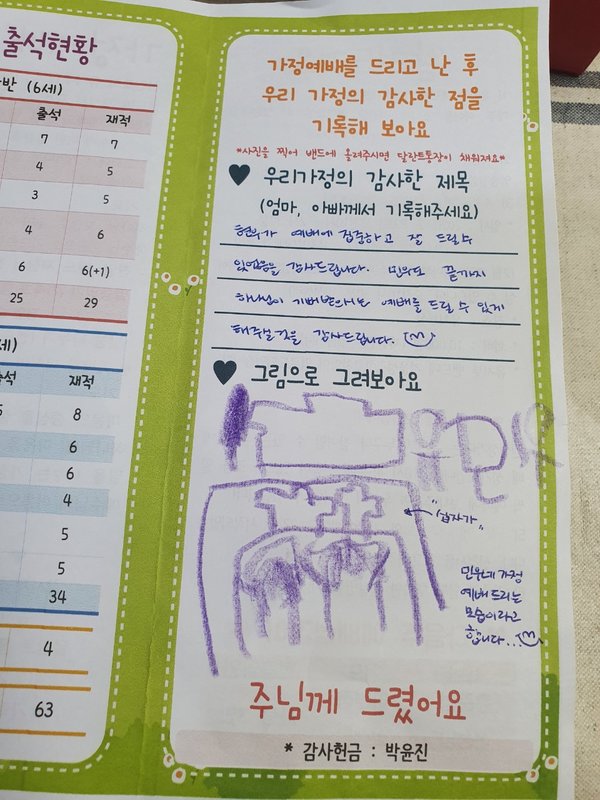 출석현황
반 (6세)
출석 재적
7 7
4 5
3 5
4 6
6 6(+1)
25 29
세)
출석 재적
8
6
6
4
5
5
34
4
63
가정예배를 드리고 난 후
우리 가정의 감사한 점을
기록해 보아요
*사진을 찍어 밴드에 올려주시면 달란트통장이 채워져요*
♥ 우리가정의 감사한 제목
(엄마, 아빠께서 기록해주세요)
현우가 예배에 집중하고 잘 드릴수
있었음을 감사드립니다. 민우도 끝까지
하나님이 예배를 드릴 수 있게
해주신것을 감사드립니다.
♥ 그림으로 그려보아요
유민우
"십자가"
민우네 가정
예배 드리는
모습이라고
합니다...
주님께 드렸어요
* 감사헌금 : 박윤진